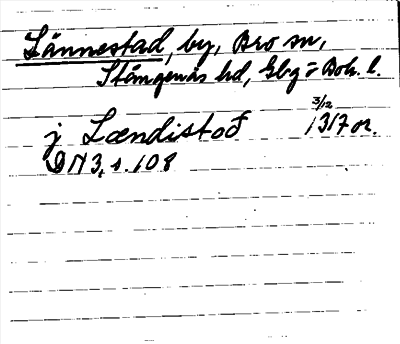 Lännestad, by, Bro sn,
Stångenäs hd, Gbg o Boh. l.
3/12
j Lændistoð 1317 or.
DN 3, s. 108